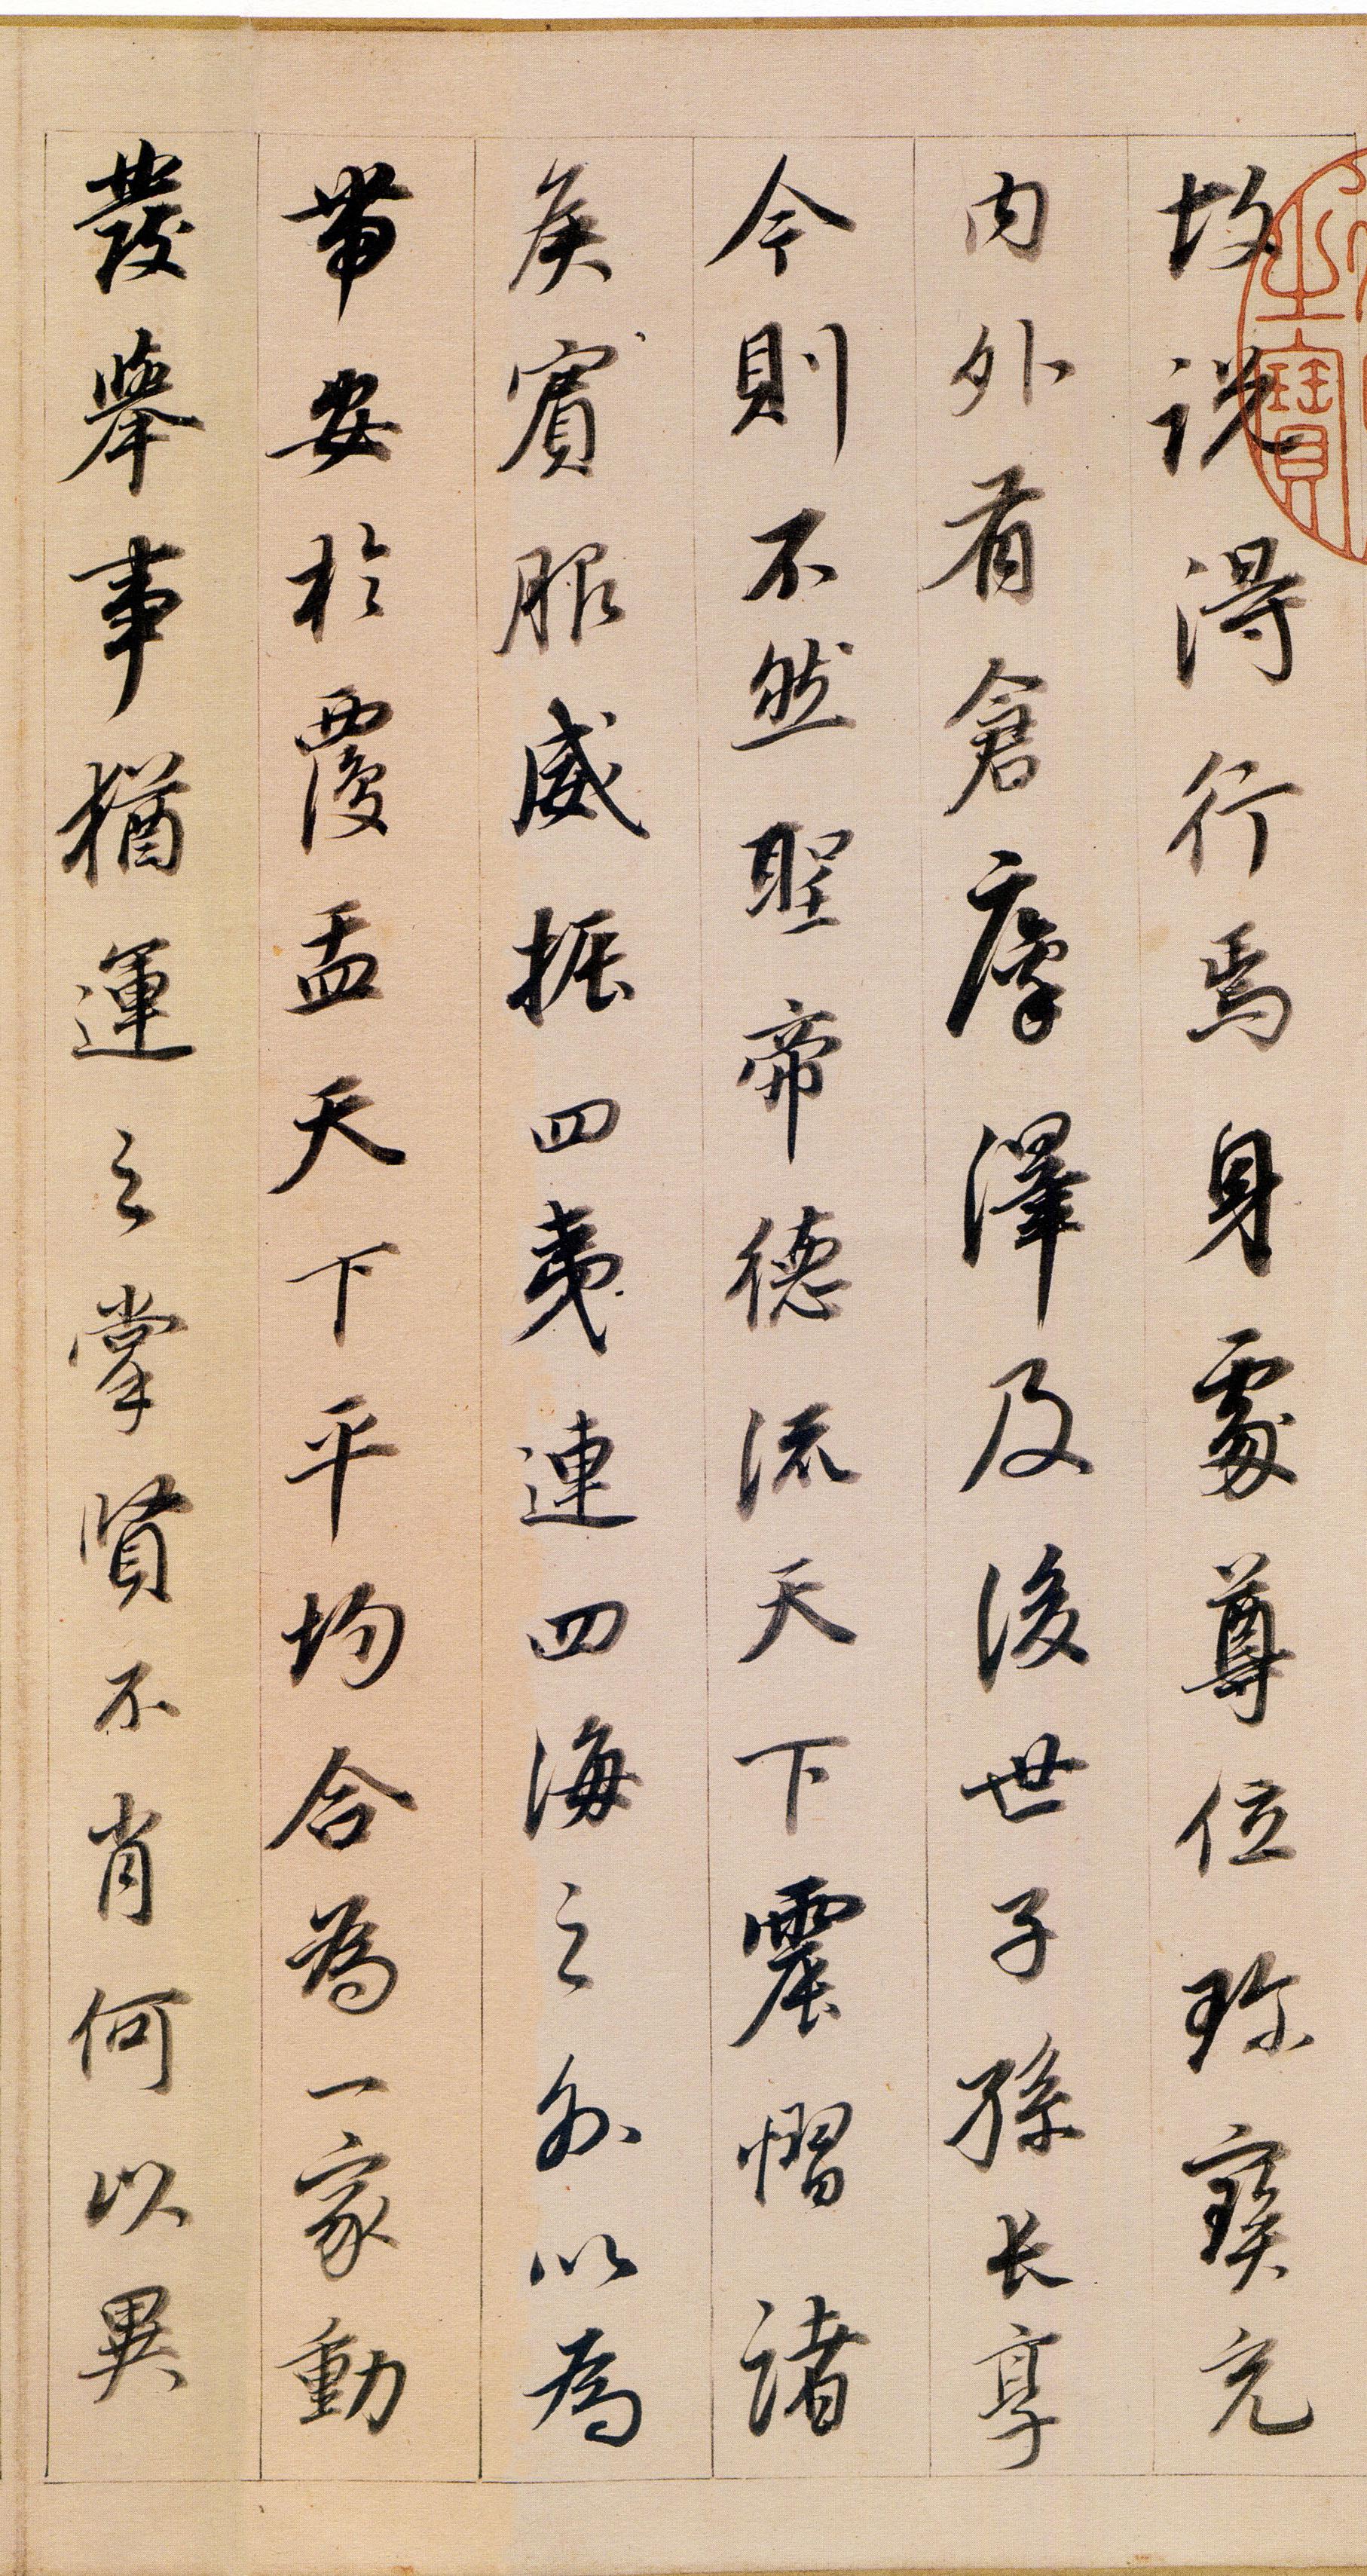 故説得行焉身處尊位珎寳充
内外有倉廩澤及後世子孫長享
今則不然聖帝德流天下震慴諸
矦賓服威振四夷連四海之外以為
帶安於覆盂天下平均合為一家動
發舉事猶運之掌賢不肖何以異